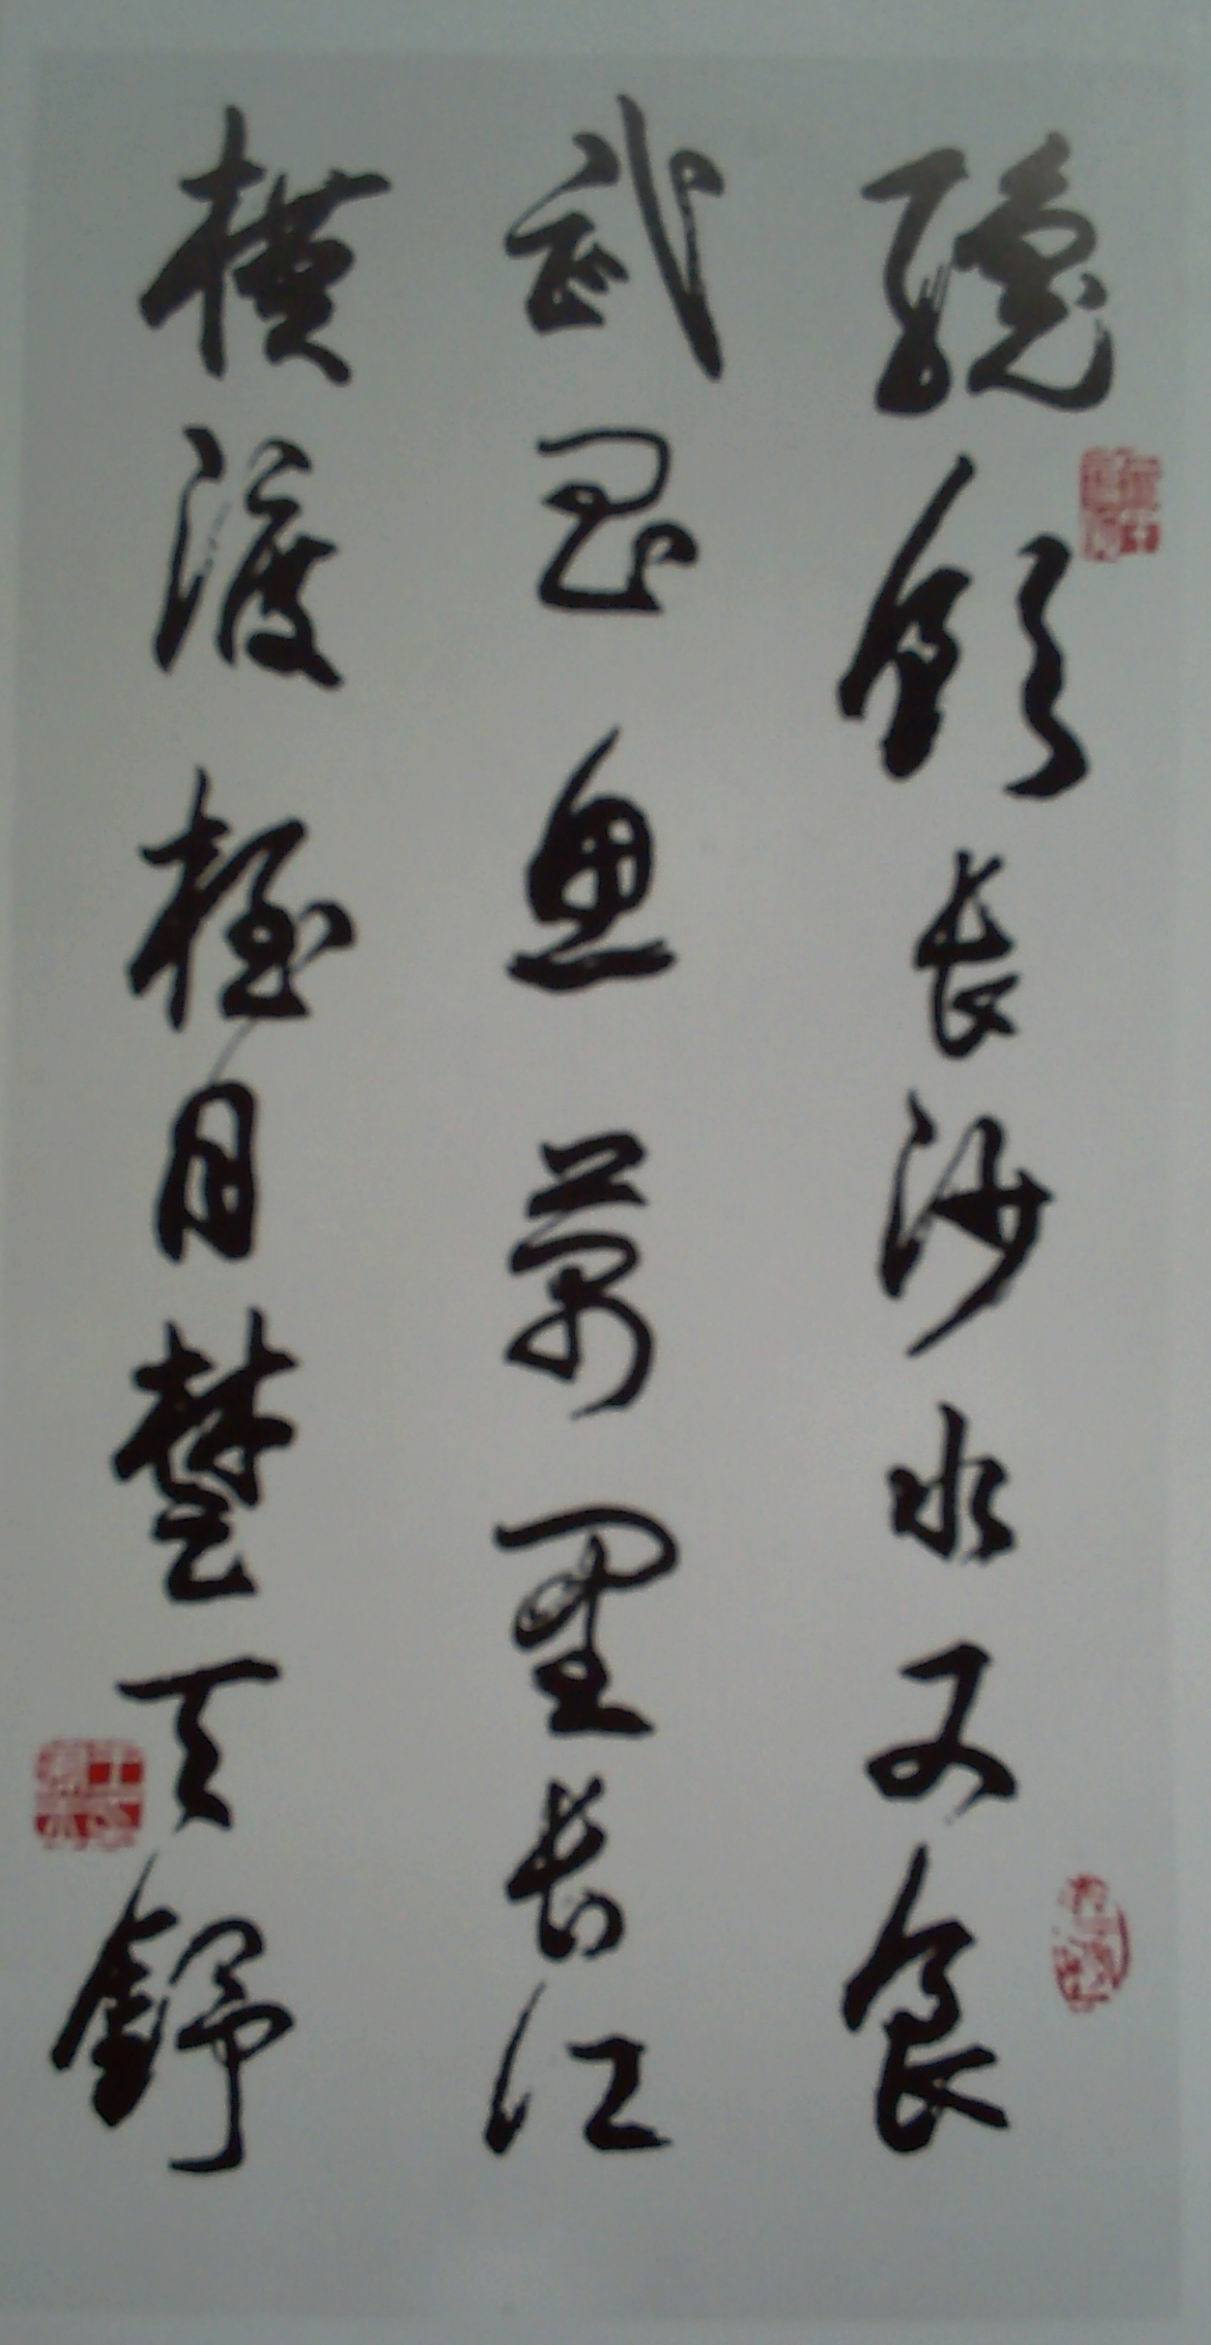 纔飲長沙水又食
武昌鱼萬里長江
横渡極目楚天舒